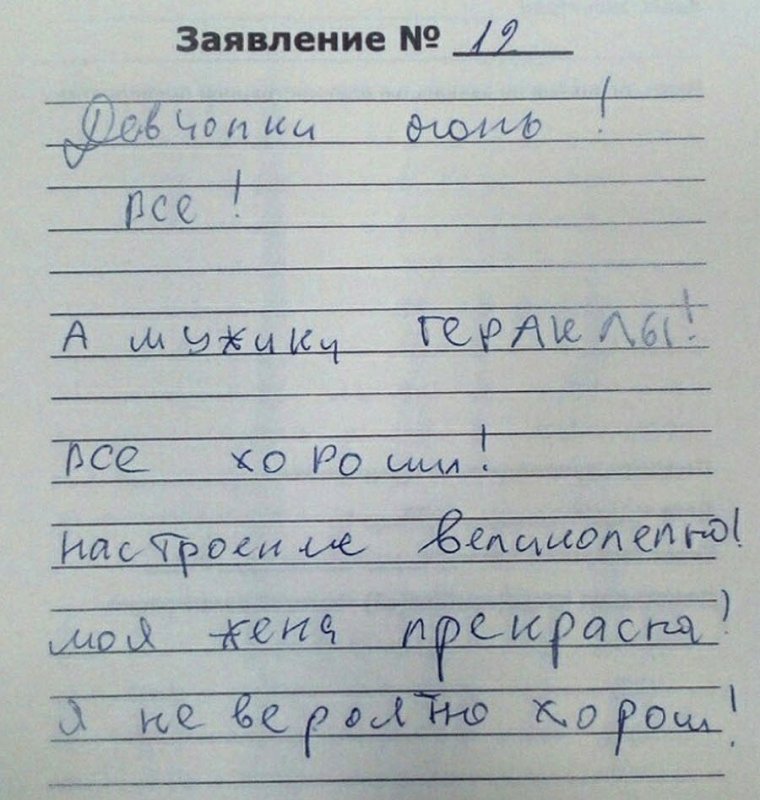 Заявление № 12
Девчонки огонь!
все!
А мужики ГЕРАКЛЫ!
все хороши!
настроение великолепно!
моя жена прекрасна!
я невероятно хорош!